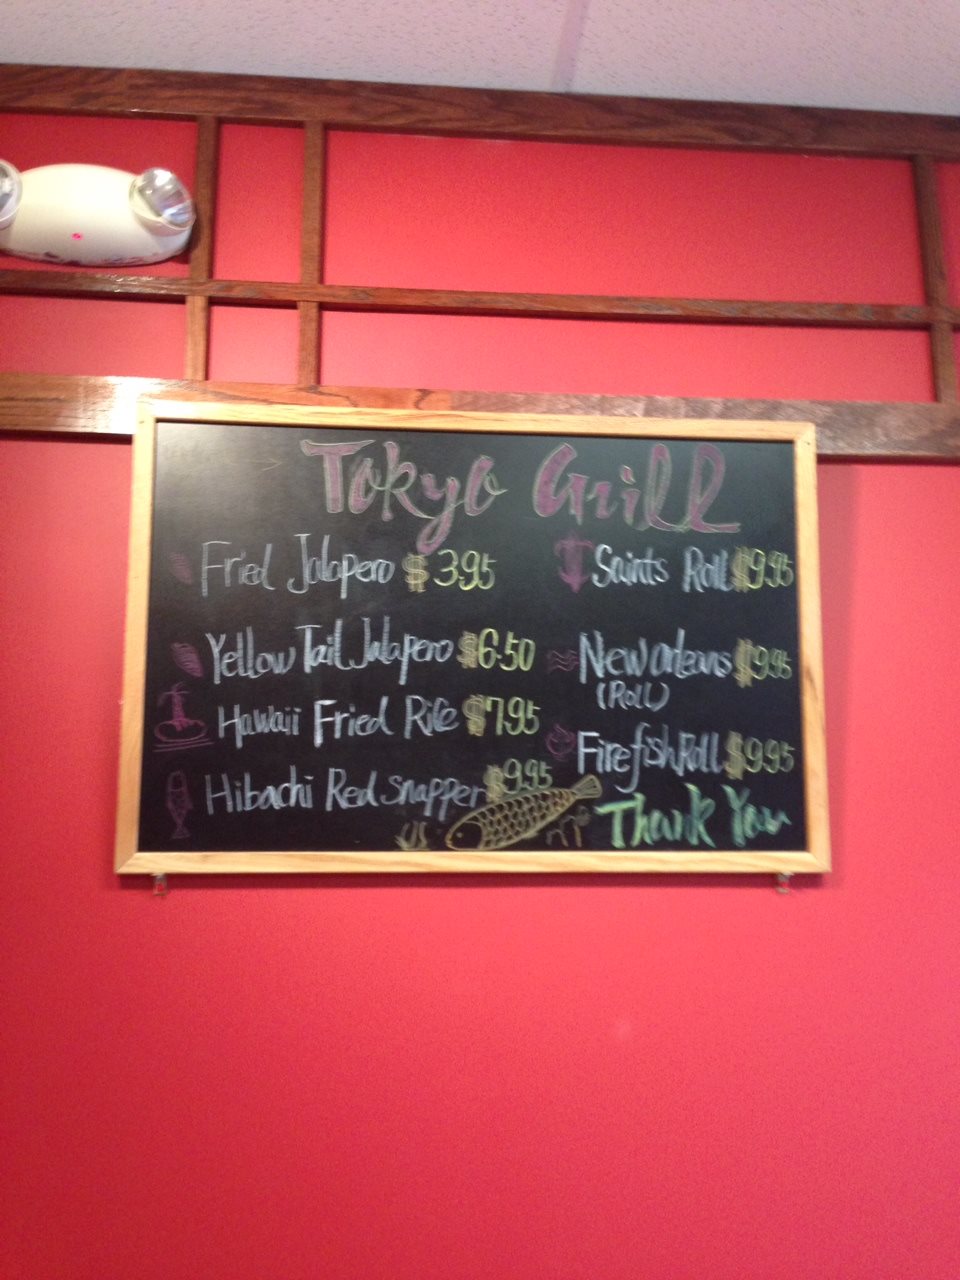 Tokyo Grill
Fried Jalapero $3.95
Yellow Tail Jalapero $6.50
Hawaii Fried Rice $7.95
Hibachi Red Snapper $9.95
Saints Roll $9.95
New Orleans $9.95
(Roll)
Firefish Roll $9.95
Thank You